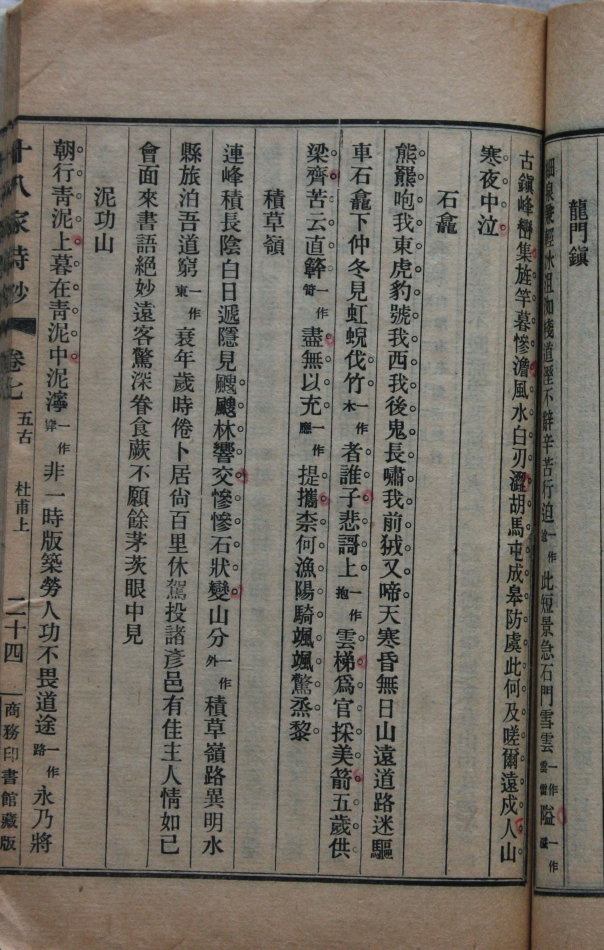 龍門鎮
細泉兼輕冰沮洳棧道溼不辭辛苦行迫一作此短景急石門雪雲一作雲雷隘一作
古鎮峰巒集旌竿暮慘澹風水白刃澀胡馬屯成皋防虞此何及嗟爾遠戍人山
寒夜中泣
石龕
熊羆咆我東虎豹號我西我後鬼長嘯我前狨又啼天寒昏無日山遠道路迷驅
車石龕下仲冬見虹蜺伐竹一作木者誰子悲謌上一作抱雲梯爲官採美箭五歲供
梁齊苦云直簳一作笴盡無以充一作應提攜柰何漁陽騎颯颯驚烝黎
積草嶺
連峰積長陰白日遞隱見颼颼林響交慘慘石狀變山分一作外積草嶺路異明水
縣旅泊吾道窮一作東衰年歲時倦卜居尚百里休駕投諸彥邑有佳主人情如已
會面來書語絕妙遠客驚深眷食蕨不願餘茅茨眼中見
泥功山
朝行青泥上暮在青泥中泥濘一作非一時版築勞人功不畏道途一作路永乃將
十八家詩鈔 卷七 五古 杜甫上 二十四 商務印書館藏版